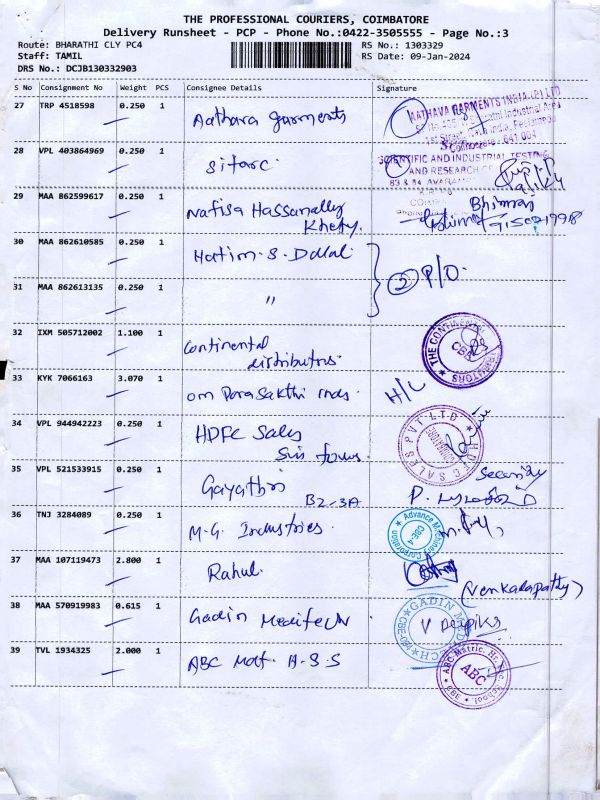 THE PROFESSIONAL COURIERS, COIMBATORE
Delivery Runsheet - PCP - Phone No.:0422-3505555 - Page No.:3
Route: BHARATHI CLY PC4
RS No.: 1303329
Staff: TAMIL
RS Date: 09-Jan-2024
DRS No.: DCJB130332903
S No Consignment No Weight PCS Consignee Details Signature
27 TRP 4518598 0.250 1 Aathava garments
AATHAVA GARMENTS INDIA (P) LTD
28 VPL 403864969 0.250 1 Sitarc
SCIENTIFIC AND INDUSTRIAL TESTING
AND RESEARCH
83 & 84 AVARAM
29 MAA 862599617 0.250 1 Nafisa Hassanally
Khety.
Bhimraj
30 MAA 862610585 0.250 1 Hatim.S.Dalal
31 MAA 862613135 0.250 1 "
② P/O.
32 IXM 505712002 1.100 1 Continental
distributors.
THE CONTINENTAL
CBE
33 KYK 7066163 3.070 1 om Parasakthi inds
34 VPL 944942223 0.250 1 HDFC Sales
HDFC SALES PVT LTD
35 VPL 521533915 0.250 1 Gayathri
B2-3A
Security
36 TNJ 3284089 0.250 1 M.G. Industries.
Advance Machinery Corporation
CBE-4
37 MAA 107119473 2.800 1 Rahul.
(Venkatapathy)
38 MAA 570919983 0.615 1 Gadin Meditech
GADIN MEDITECH
V Deepika
39 TVL 1934325 2.000 1 ABC Mat. H.S.S
ABC Matric. Hr. Sec. School
ABC